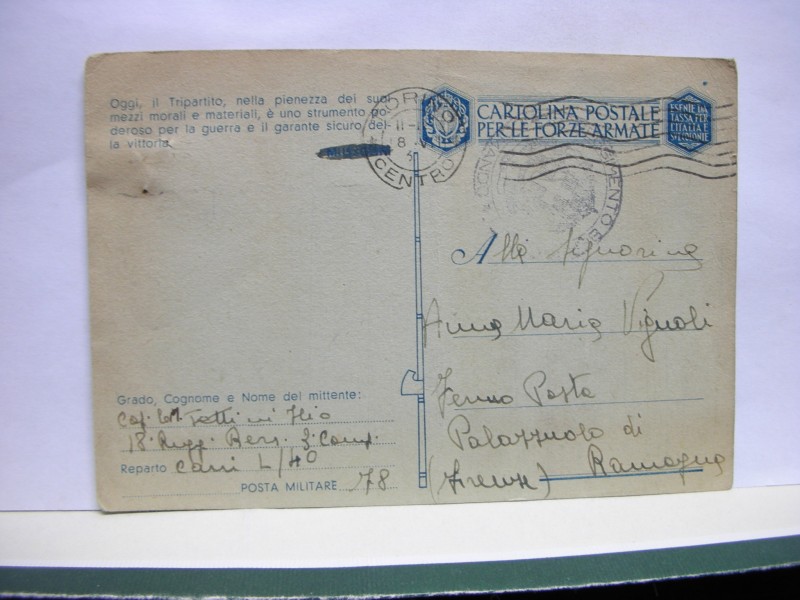 Oggi, il Tripartito, nella pienezza dei suoi
mezzi morali e materiali, è uno strumento po-
deroso per la guerra e il garante sicuro del-
la vittoria.
CENTRO
CARTOLINA POSTALE
PER LE FORZE ARMATE
ESENTE DA
TASSA PER
L'ITALIA E
Alla Signorina
Anna Maria Vignoli
Fermo Posta
Palazzuolo di
Romagna
(Firenze)
Grado, Cognome e Nome del mittente:
Ilio
18° Regg. Bers. 3° Comp.
Reparto Carri L/40
POSTA MILITARE 78